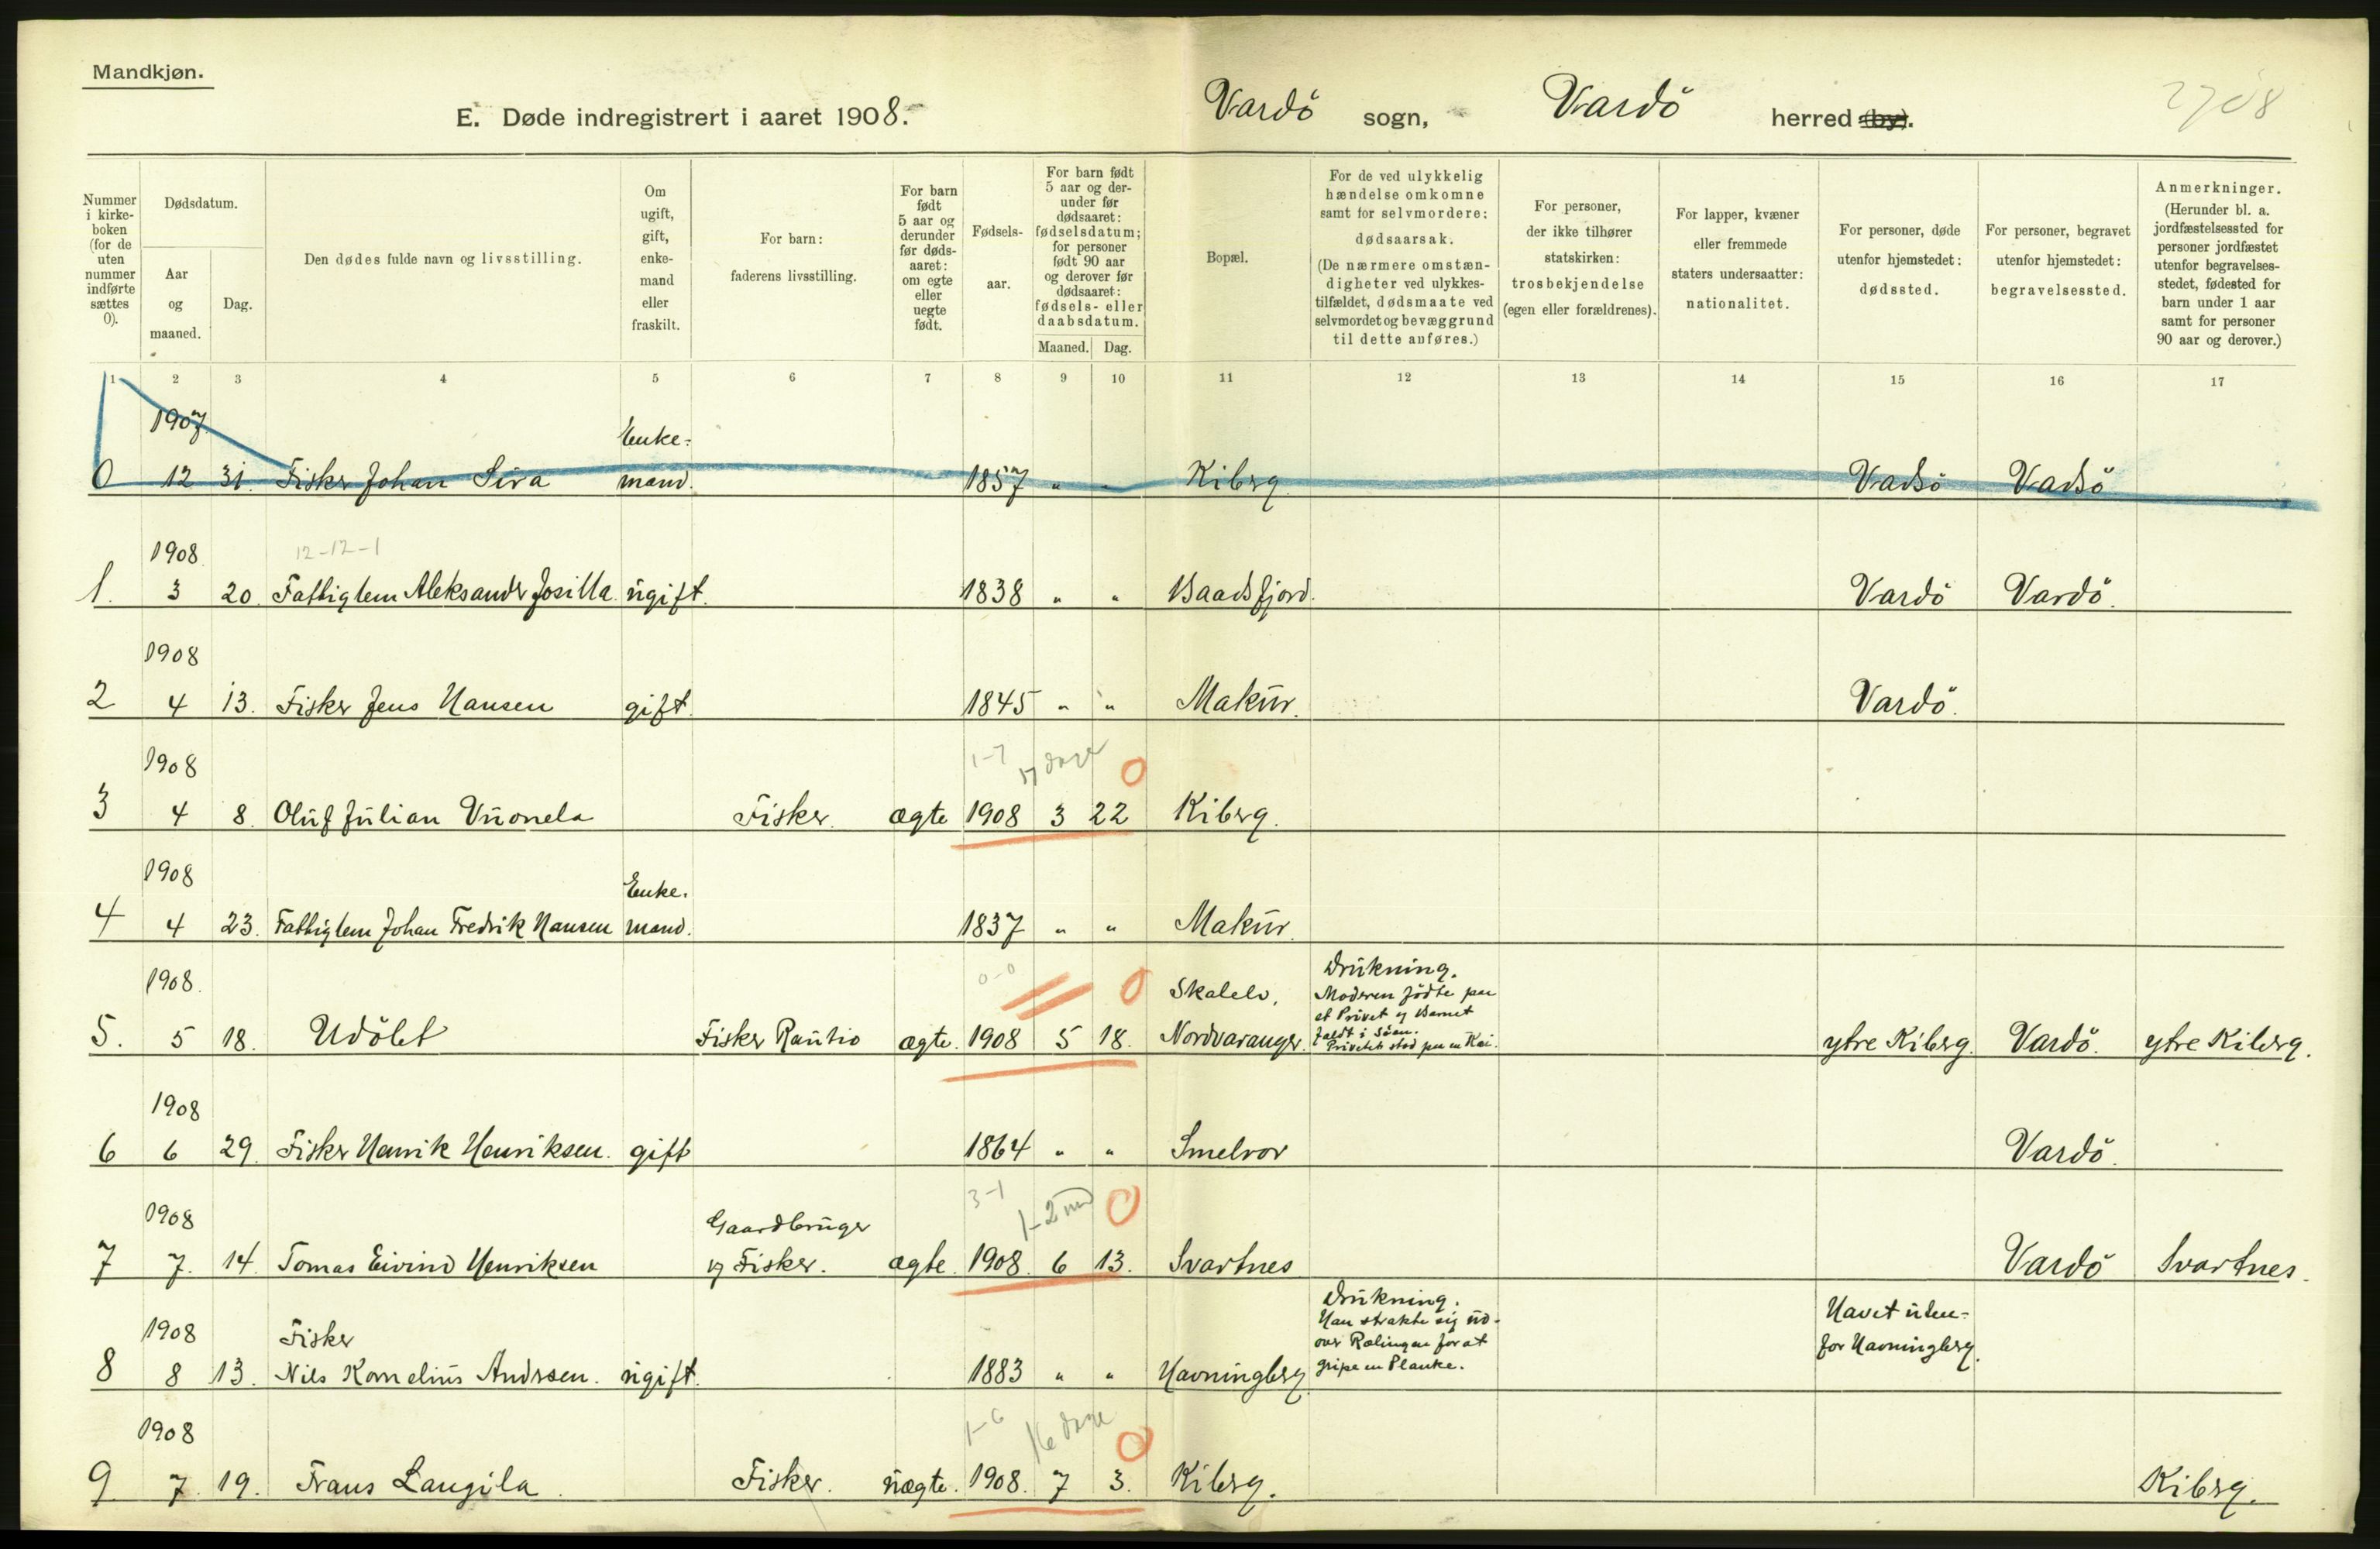 Mandkjøn.
E. Døde indregistrert i aaret 1908.
Vardö sogn, Vardö herred (by).
2708
Nummer i kirke- boken (for de uten nummer indførte sættes 0).
Dødsdatum.
Aar og maaned.
Dag.
Den dødes fulde navn og livsstilling.
Om ugift, gift, enke- mand eller fraskilt.
For barn: faderens livsstilling.
For barn født 5 aar og derunder før døds- aaret: om egte eller uegte født.
Fødsels- aar.
For barn født 5 aar og der- under før dødsaaret: fødselsdatum; for personer født 90 aar og derover før dødsaaret: fødsels- eller daabsdatum.
Maaned. Dag.
Bopæl.
For de ved ulykkelig hændelse omkomne samt for selvmordere: dødsaarsak. (De nærmere omstæn- digheter ved ulykkes- tilfældet, dødsmaate ved selvmordet og bevæggrund til dette anføres.)
For personer, der ikke tilhører statskirken: trosbekjendelse (egen eller forældrenes).
For lapper, kvæner eller fremmede staters undersaatter: nationalitet.
For personer, døde utenfor hjemstedet: dødssted.
For personer, begravet utenfor hjemstedet: begravelsessted.
Anmerkninger. (Herunder bl. a. jordfæstelsessted for personer jordfæstet utenfor begravelses- stedet, fødested for barn under 1 aar samt for personer 90 aar og derover.)
1 2 3 4 5 6 7 8 9 10 11 12 13 14 15 16 17
1907
Enke-
0 12 31. Fisker Johan Sira mand. 1857 " " Kiberg Vadsö Vadsö
1908 12-12-1
1. 3 20. Fattiglem Aleksander Josilla ugift. 1838 " " Baadsfjord. Vardö Vardö.
1908
2 4 13. Fisker Jens Hansen gift. 1845 " " Makur. Vardö.
1908 1-7 17 dage 0
3 4 8. Oluf Julian Vuonela Fisker. ægte 1908 3 22 Kiberg.
1908 Enke.
4 4 23. Fattiglem Johan Fredrik Hansen mand. 1837 " " Makur.
1908. 0-0 0 Skalelv, Drukning.
Moderen fødte paa
et Privet og Barnet
faldt i Söen.
5. 5 18. Udöbt Fisker Rautio ægte. 1908 5 18. Nordvaranger. Privetet stod paa en Kai. ytre Kiberg. Vardö. ytre Kiberg.
1908
6 6 29. Fisker Henrik Henriksen. gift 1864 " " Smelror Vardö.
1908 Gaardbruger 3-1 1-2 md 0
7 7. 14. Tomas Eivind Henriksen og Fisker. ægte. 1908. 6 13. Svartnes Vardö Svartnes.
1908 Fisker Drukning.
Han strakte sig ud-
over Rælingen for at
gripe en Planke.
Havet uten-
for Havningberg.
8 8 13. Nils Kornelius Andrsen. ugift. 1883 " " Havningberg
1908 1-6 16 dage 0
9 7. 19. Frans Langila Fisker. uægte. 1908. 7 3. Kiberg. Kiberg.